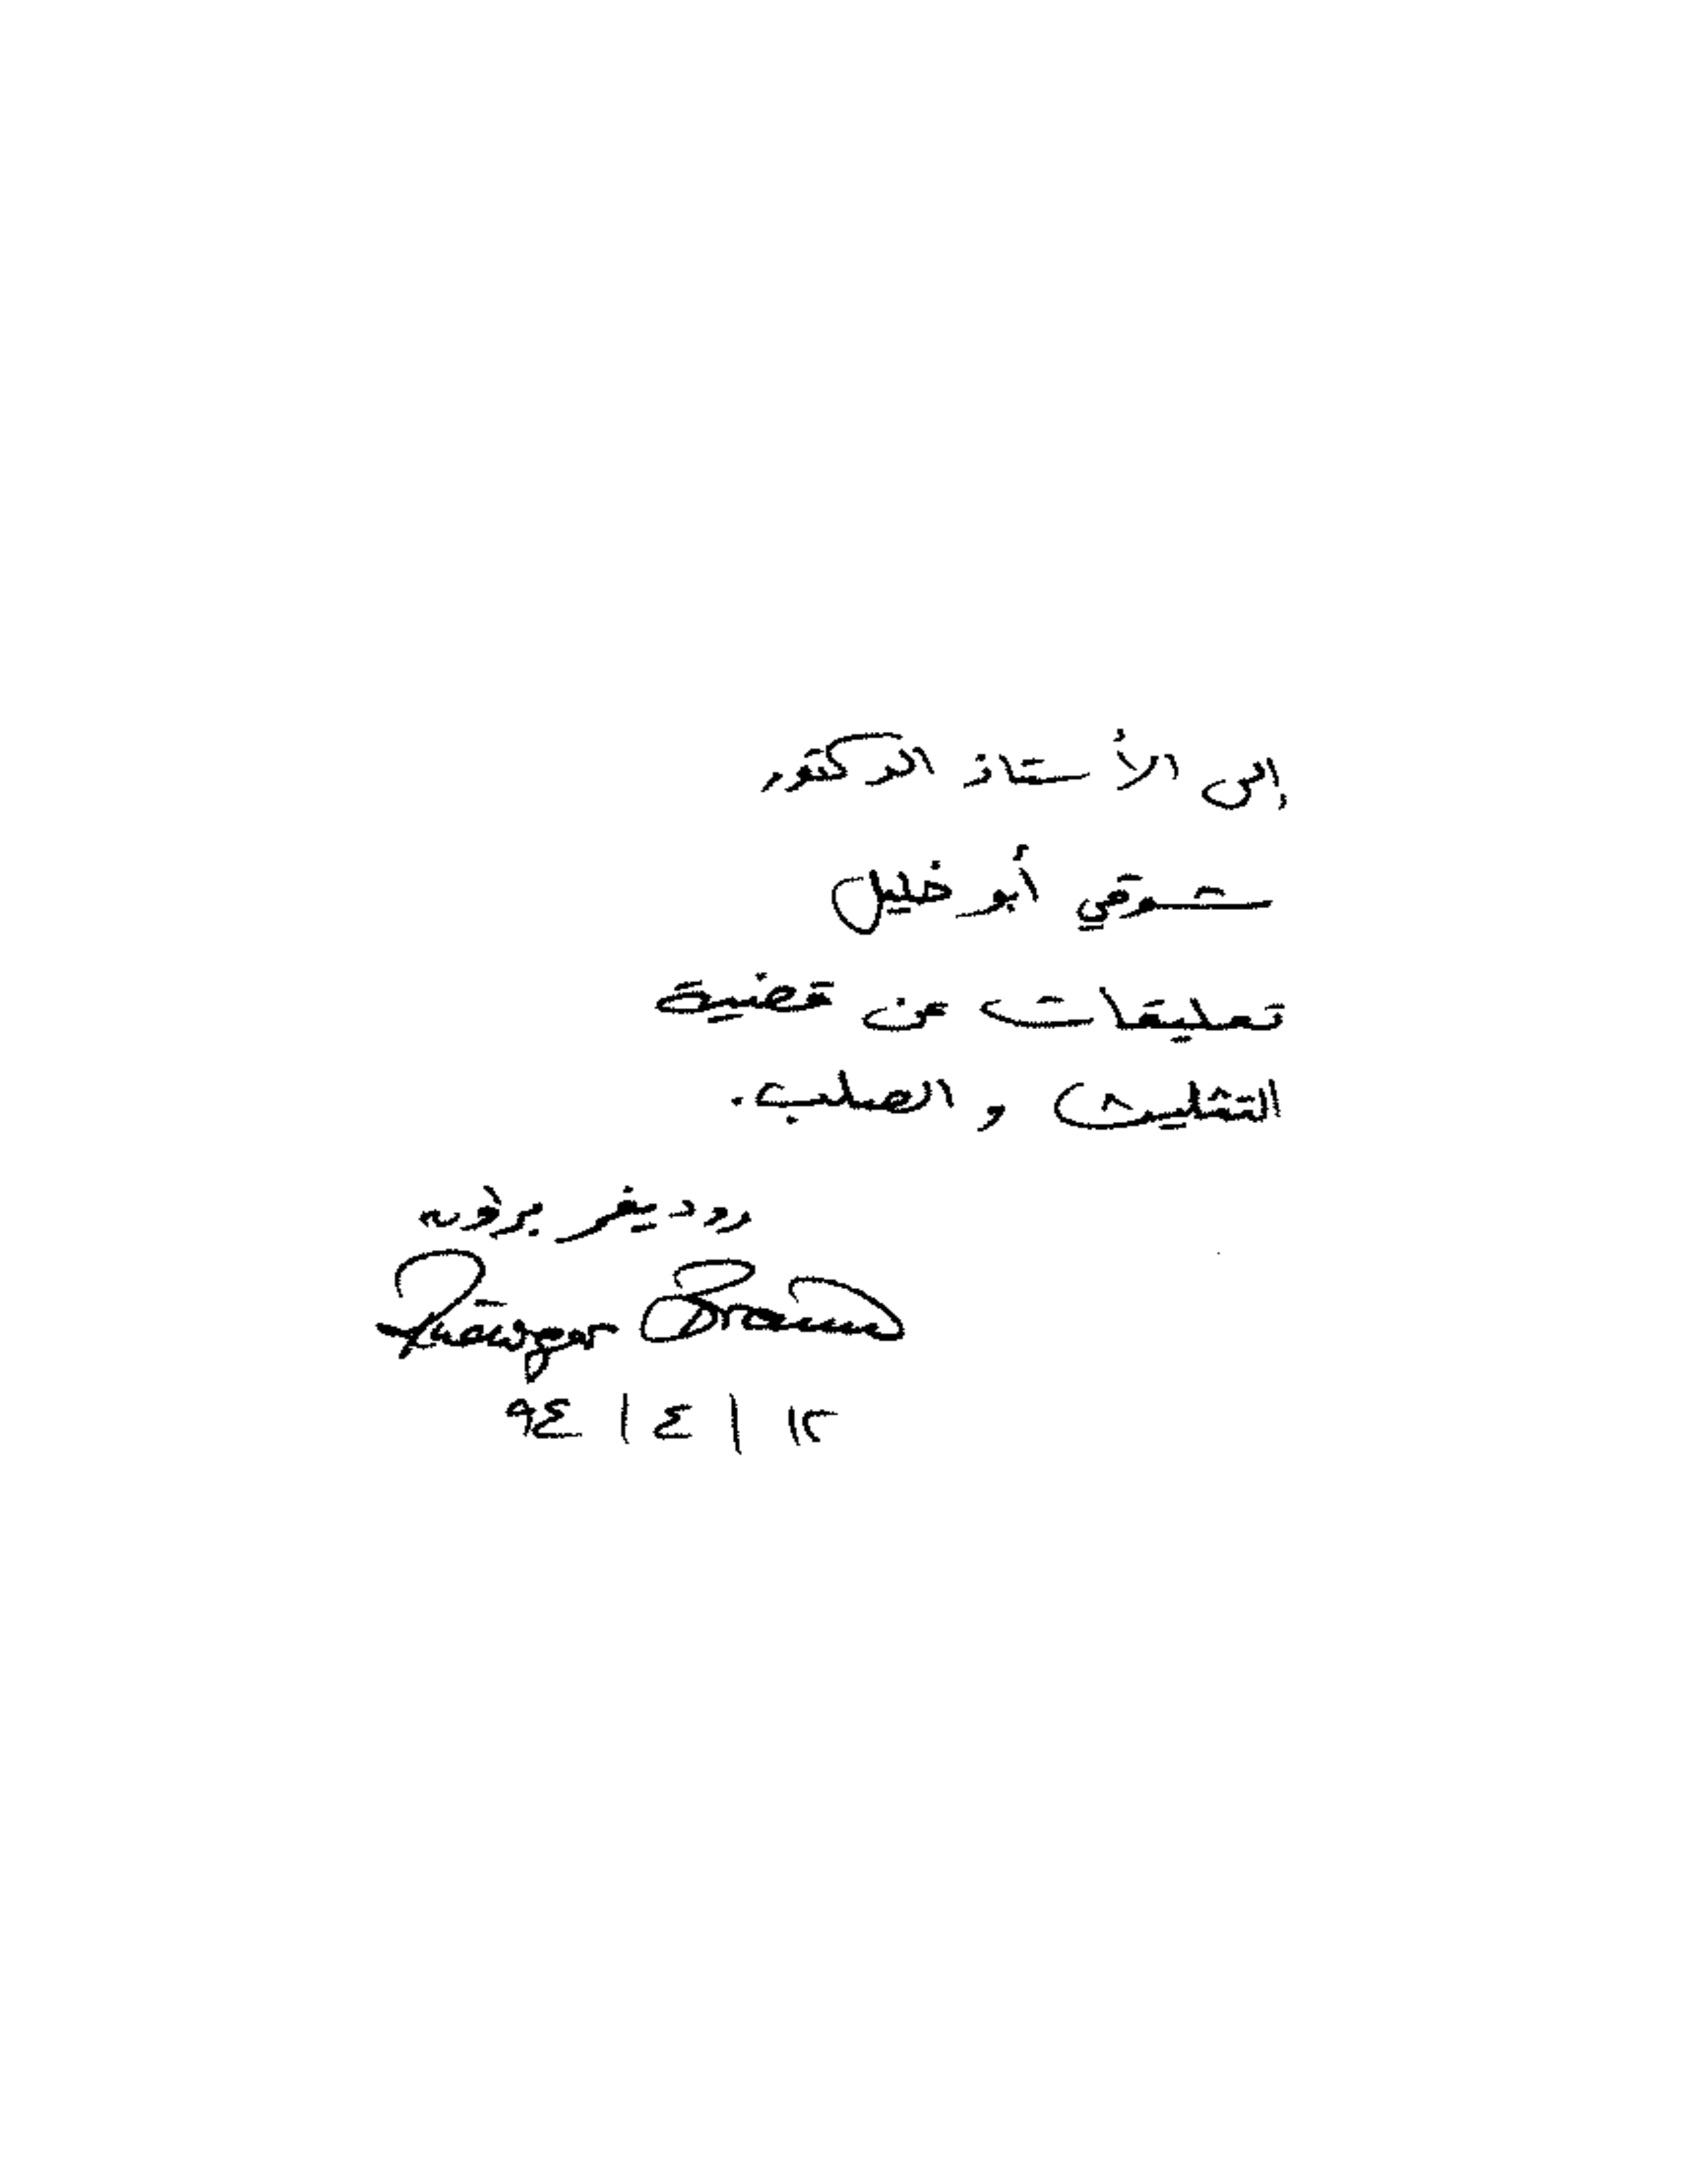 إلى الأستاذ الدكتور
شوقي أبو خليل
تعليقات عن قضية
التثليث و الصلب.
روديغر براون
Rüdiger Braun
١٢ / ٤ / ٩٤